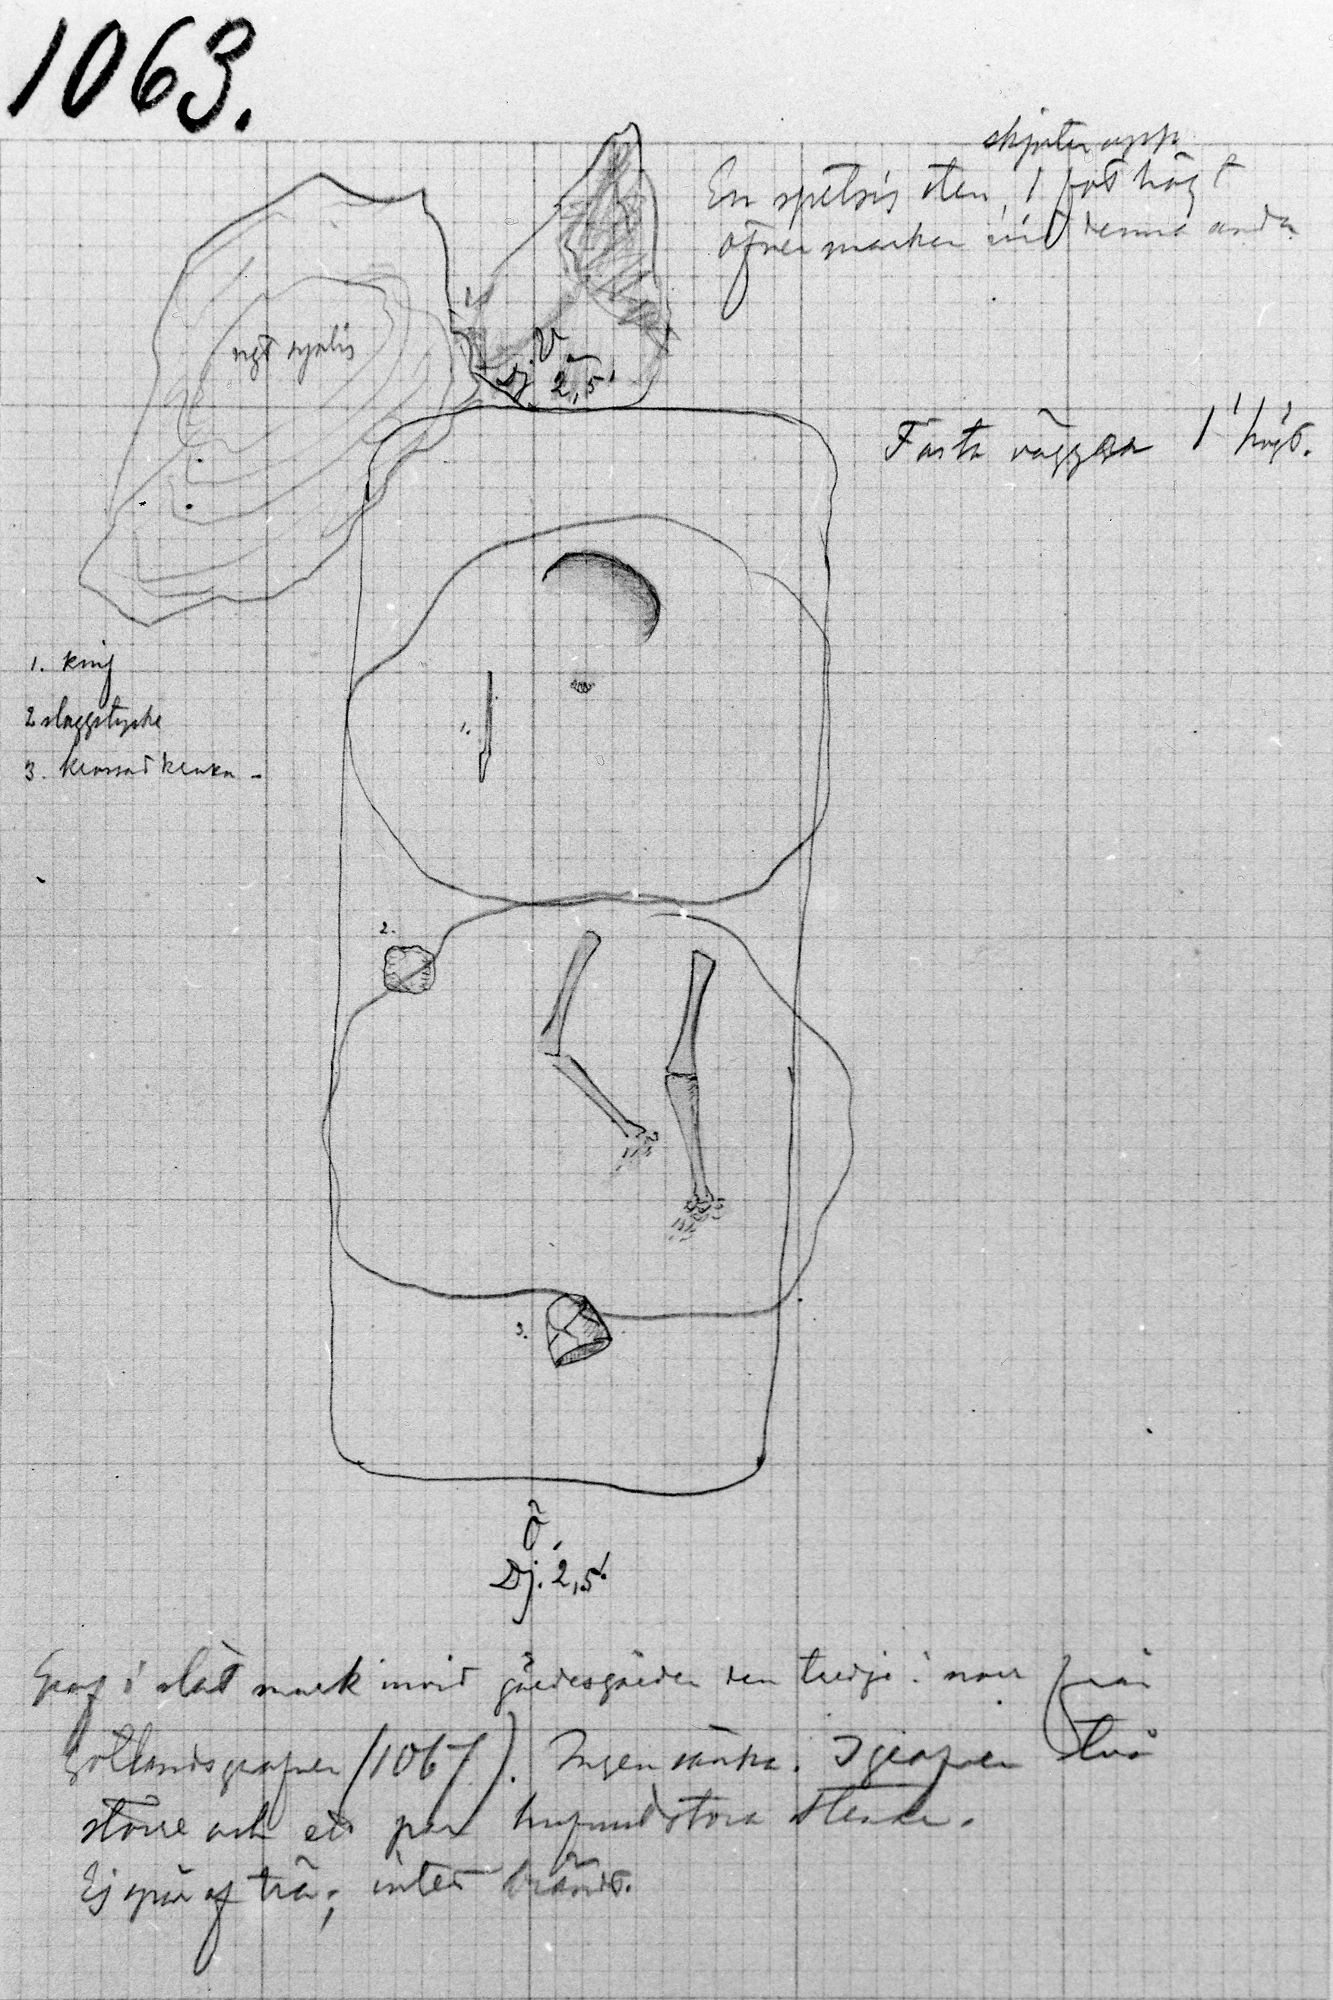 1063.
skjuter upp
En spetsig sten, 1 fot högt
öfver marken vid denna ända
ngt spolis
V
Dj. 2,5'
Fasta väggar 1' högt.
1. knif
2 slaggstycke
3. krossad kruka -
1.
2.
3.
Ö.
Dj. 2,5'
Graf i slät mark invid gärdesgården den tredje i norr från
Gotlandsgrafven (1067). Ingen sänka. I grafven två
större och ett par hufvudstora stenar.
Ej spår af trä; intet brändt.